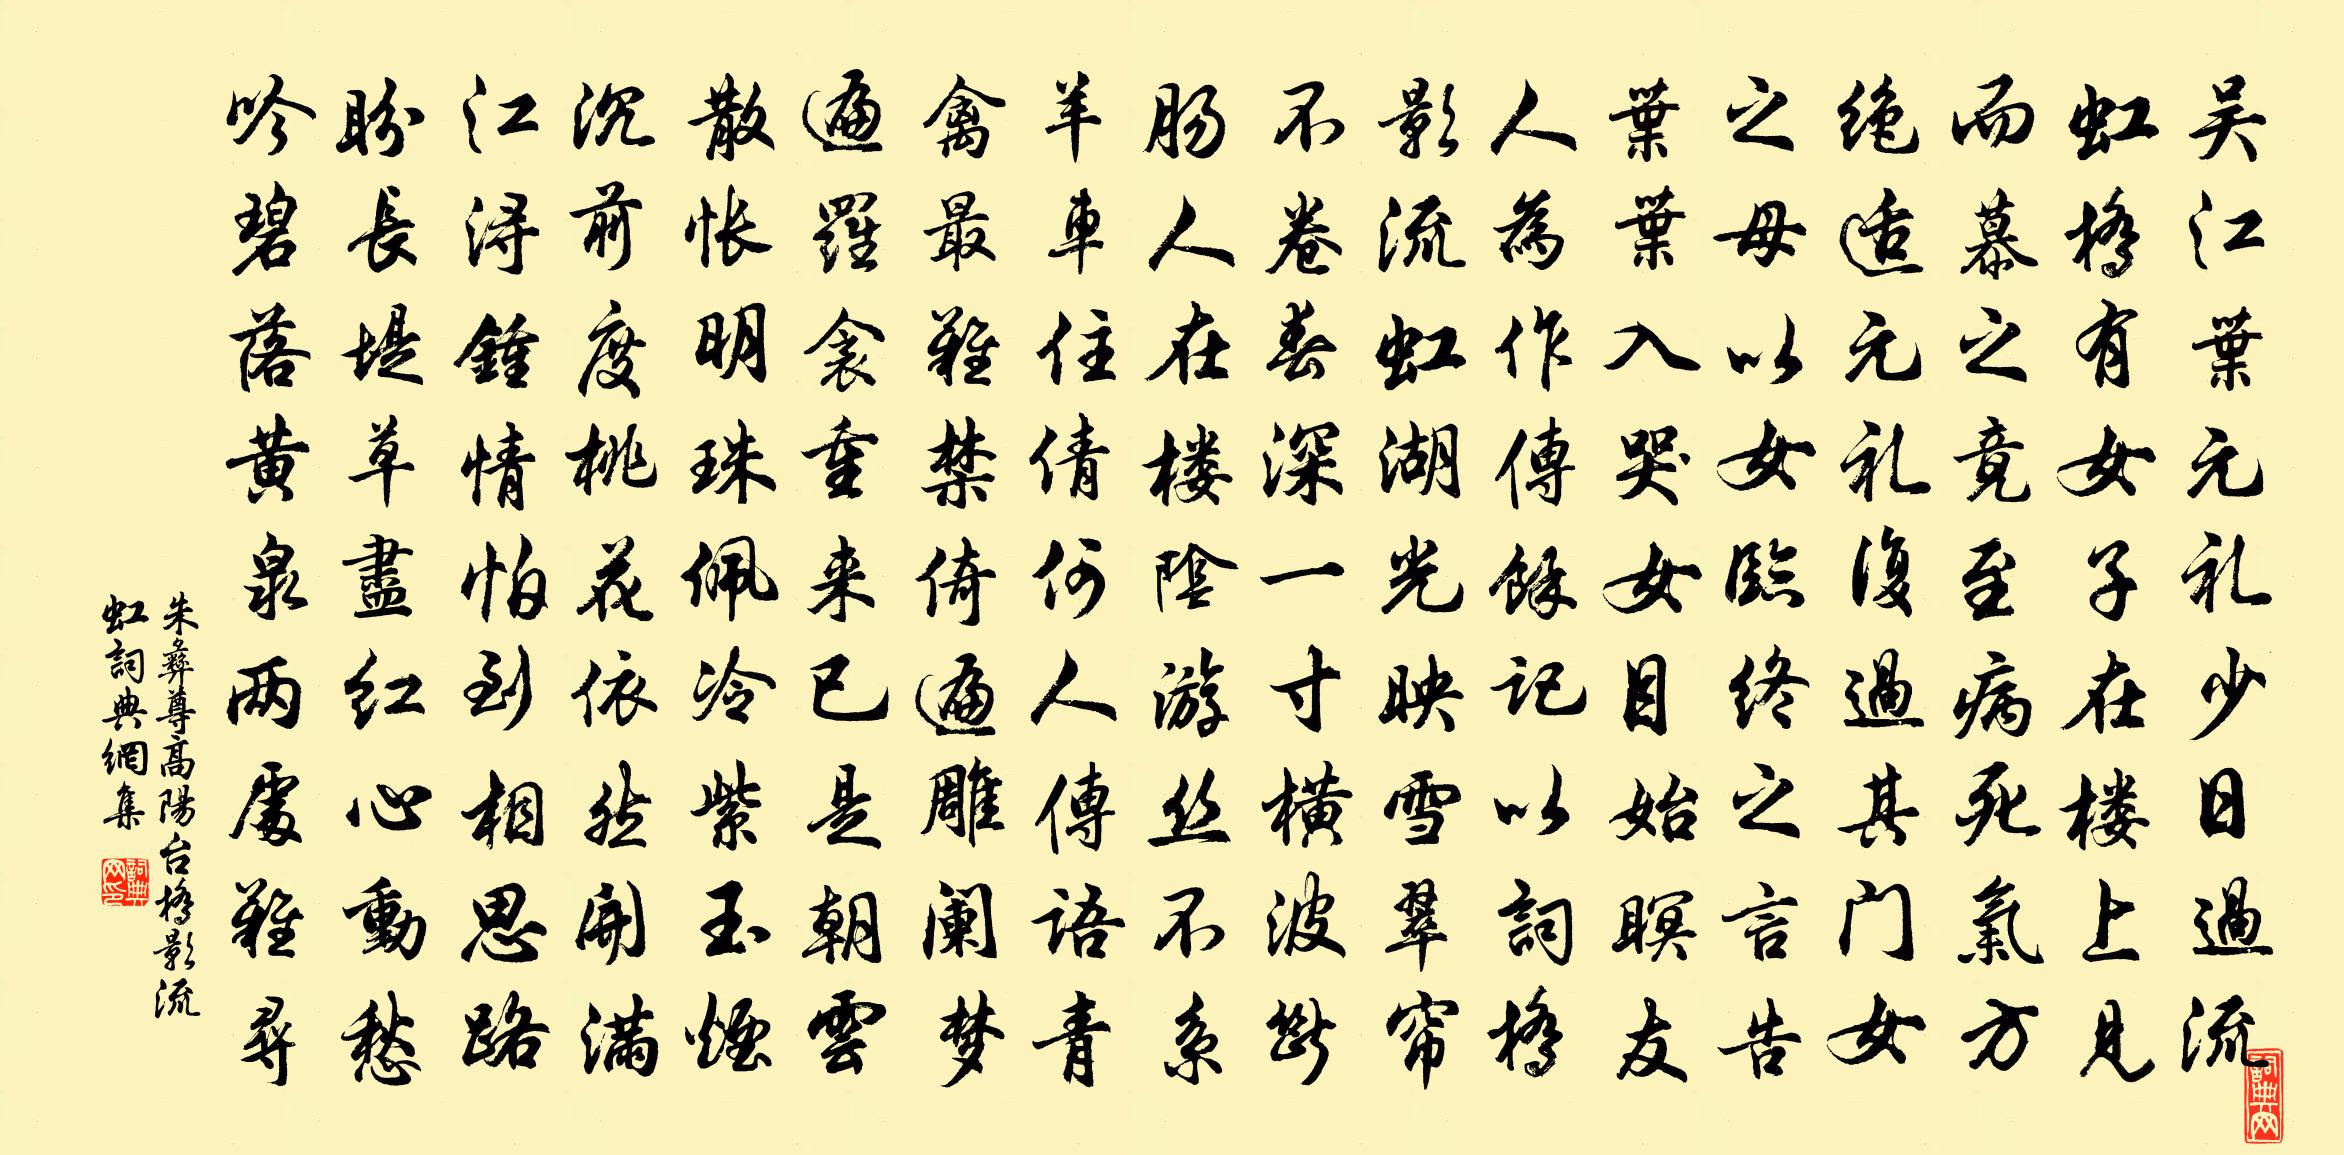 吴江葉元礼少日過流
虹橋有女子在楼上見
而慕之竟至病死氣方
绝适元礼復過其门女
之母以女臨终之言告
葉葉入哭女目始瞑友
人為作傳餘記以詞橋
影流虹湖光映雪翠帘
不卷春深一寸横波斷
肠人在楼陰游丝不系
羊車住倩何人傳語青
禽最難禁倚遍雕阑梦
遍羅衾重来已是朝雲
散怅明珠佩冷紫玉煙
沉前度桃花依然開满
江浔鍾情怕到相思路
盼長堤草盡红心動愁
吟碧落黄泉两處難尋
朱彝尊高陽台橋影流
虹詞典網集
詞典网印
詞典网